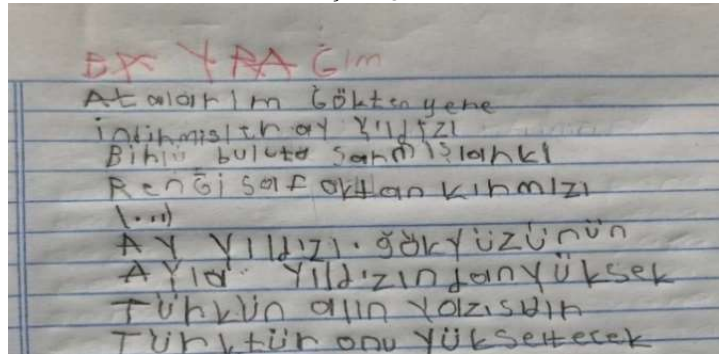 BAYRAĞIM
Atalarım Gökten yere
indirmişler ay Yıldızı
Birlü buluta sarmışlarki
Rengi saf oktan kırmızı
(...)
AY Yıldızı. gökyüzünün
AYla Yıldızından Yüksek
Türkün alın Yazısıdır
Türktür onu Yükseltecek